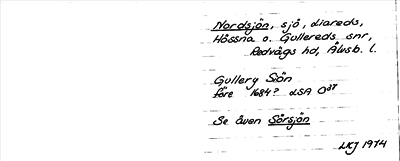 Nordsjön, sjö, Liareds,
Hössna o. Gullereds snr,
Redvägs hd, Älvsb. l.
Gullery Siön
före 1684? LSA O37
Se även Sörsjön
LKJ 1974